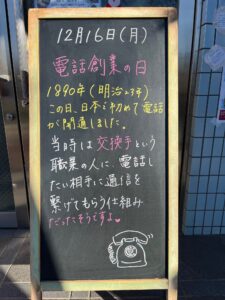 12月16日(月)
電話創業の日
1890年(明治23年)
この日、日本で初めて電話
が開通しました。
当時は交換手という
職業の人に、電話し
たい相手に通信を
繋げてもらう仕組み
だったそうですよ